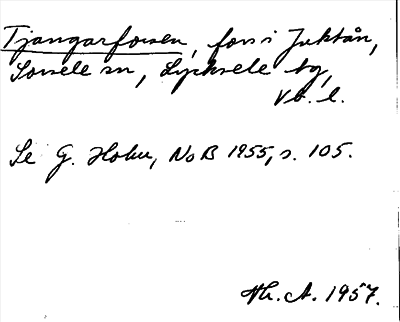 Tjangarforsen, fors i Juktån,
Sorsele sn, Lycksele tg,
Vb. l.
Se G. Holm, NoB 1955, s. 105.
Hr. A. 1957.